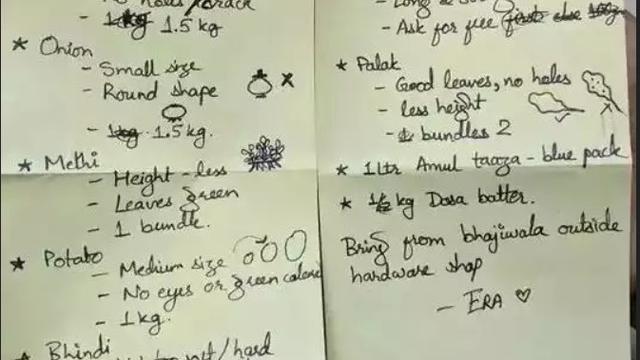 - 1.5 kg
* Onion
- Small size
- Round shape
- 1kg 1.5 kg.
* Methi
- Height - less
- Leaves green
- 1 bundle.
* Potato
- Medium size
- No eyes or green colored
- 1 kg.
* Bhindi
hard
- Ask for free
* Palak
- Good leaves, no holes
- less height
- bundles 2
* 1 ltr Amul taaza - blue pack
* 1/2 kg Dosa batter.
Bring from bhajiwala outside
hardware shop
- ERA ♡